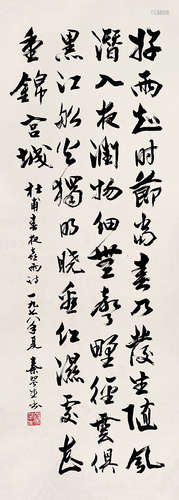 好雨知时節當春乃發生隨風
潛入夜潤物細無聲野徑雲俱
黑江船火獨明曉看红濕處花
重錦官城
杜甫春夜喜雨诗 一九七八年夏 秦咢生书